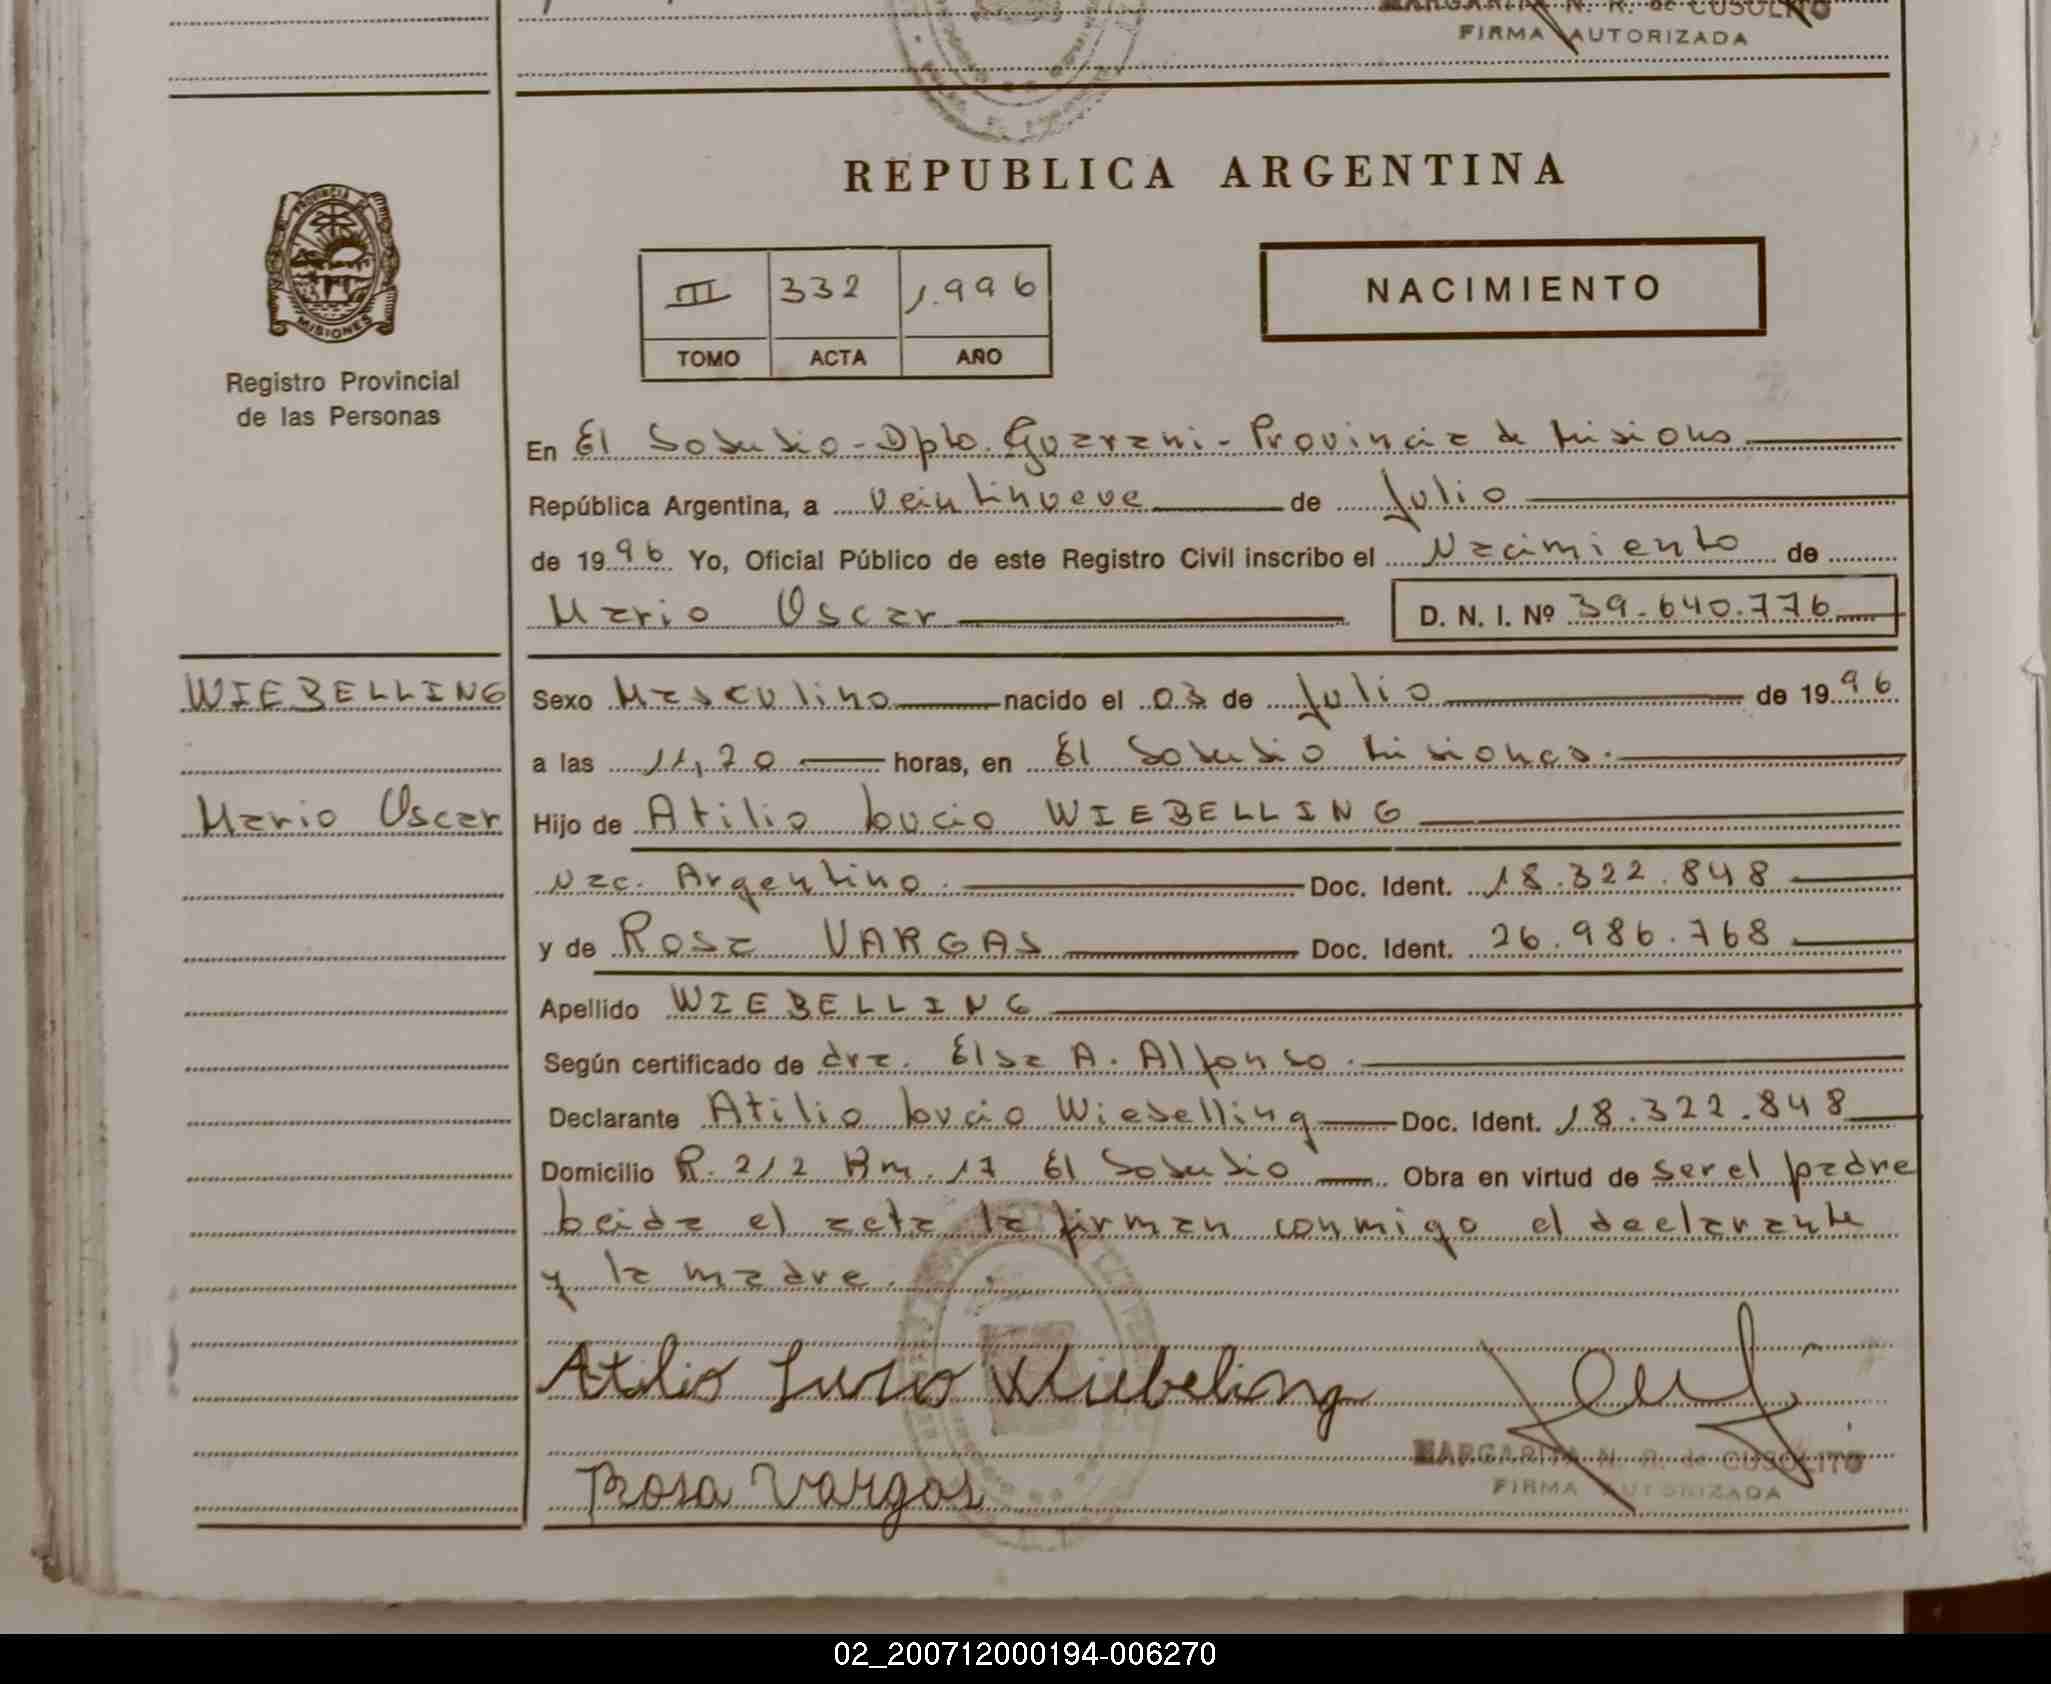 MARGARITA N. R. de CUSOLITO
FIRMA AUTORIZADA
PROVINCIA DE
MISIONES
Registro Provincial
de las Personas
REPUBLICA ARGENTINA
III 332 1.996
TOMO ACTA AÑO
NACIMIENTO
En El Soberbio - Dpto. Guarani - Provincia de Misiones
República Argentina, a veintinueve de Julio
de 1996 Yo, Oficial Público de este Registro Civil inscribo el Nacimiento de
Mario Oscar D. N. I. Nº 39.640.776
WIEBELLING
Mario Oscar
Sexo Masculino nacido el 03 de Julio de 1996
a las 11,20 horas, en El Soberbio Misiones.
Hijo de Atilio Lucio WIEBELLING
Nac. Argentino. Doc. Ident. 18.322.848
y de Rosa VARGAS Doc. Ident. 26.986.768
Apellido WIEBELLING
Según certificado de dra. Elsa A. Alfonso.
Declarante Atilio Lucio Wiebelling Doc. Ident. 18.322.848
Domicilio R. 212 Km. 17 El Soberbio Obra en virtud de ser el padre
Leida el acta la firman conmigo el declarante
y la madre.
Atilio Lucio Wiebeling
Rosa Vargas
MARGARITA N. R. de CUSOLITO
FIRMA AUTORIZADA
02_200712000194-006270